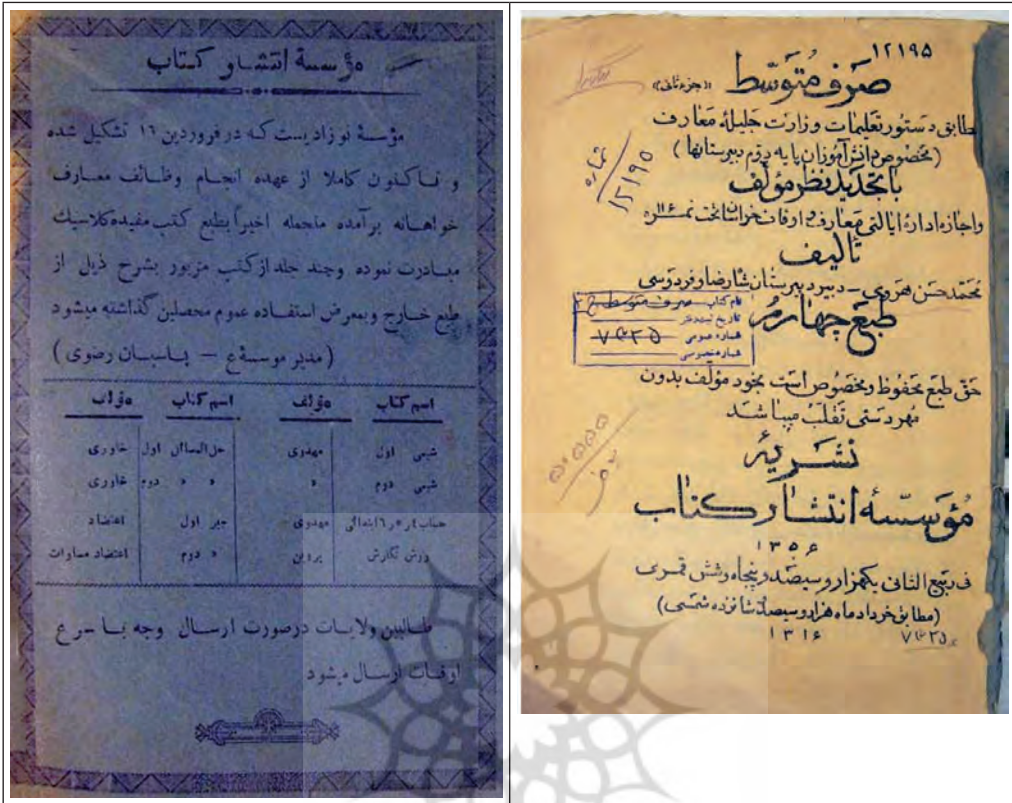 مؤسسهٔ انتشار کتاب
مؤسسهٔ نوزادیست که در فروردین ۱۶ تشکیل شده
و تاکنون کاملا از عهده انجام وظائف معارف
خواهانه برآمده منجمله اخیراً بطبع کتب مفیده کلاسیک
مبادرت نموده و چند جلد از کتب مزبور بشرح ذیل از
طبع خارج و بمعرض استفاده عموم محصلین گذاشته میشود
(مدیر موسسه ع — پاسبان رضوی)
اسم کتاب مؤلف اسم کتاب مؤلف
شیمی اول مهدوی حل المسائل اول خاوری
شیمی دوم » » » دوم خاوری
حساب ۴ و ۵ و ۶ ابتدائی مهدوی جبر اول اعتضاد
ورزش نگارش پروین » دوم اعتضاد مساوات
طالبین ولایات درصورت ارسال وجه با سرع
اوقات ارسال میشود
۱۲۱۹۵
صرف متوسط «جزء ثانی»
مطابق دستور تعلیمات وزارت جلیلهٔ معارف
(مخصوص دانش‌آموزان پایه دوم دبیرستانها)
با تجدید نظر مؤلف
شماره
۱۲۱۹۵
و اجازه ادارهٔ ایالتی معارف و اوقاف خراسان تحت نمره ۱۱۶
تألیف
محمد حسن هروی – دبیر دبیرستان شارضا و فردوسی
طبع چهارم
نام کتاب صرف متوسط ج ۲
تاریخ ثبت دفتر
شماره عمومی ۷۴۲۵
شماره خصوصی
حق طبع محفوظ و مخصوص است بخود مؤلف بدون
مهر دستی تقلب میباشد
نشریهٔ
مؤسسهٔ انتشار کتاب
۱۳۵۶
فی ربیع الثانی یکهزار و سیصد و پنجاه و شش قمری
(مطابق خرداد ماه هزار و سیصد و شانزده شمسی)
۱۳۱۶
۷۴۲۵